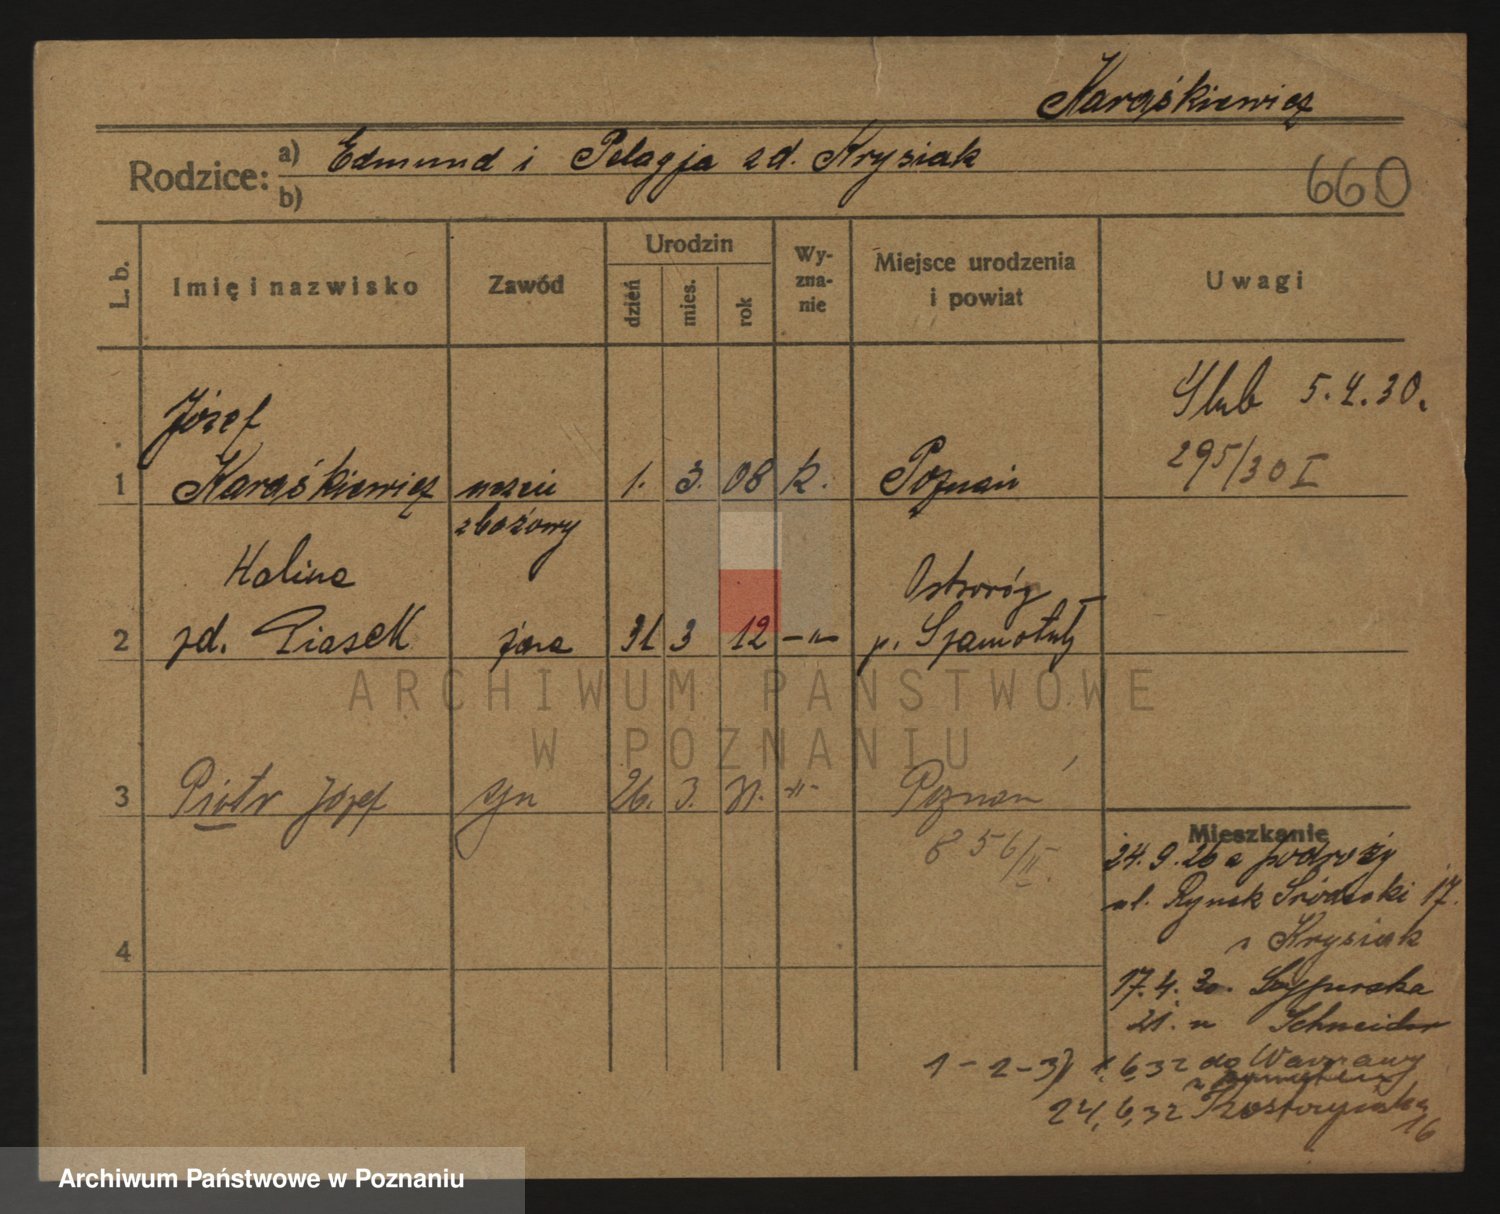 Karaśkiewicz
Rodzice: a) Edmund i Pelagja zd. Krysiak
b)
660
L. b. Imię i nazwisko Zawód Urodzin dzień mies. rok Wy-zna-nie Miejsce urodzenia i powiat Uwagi
Ślub 5.4.30.
295/30 I
Józef
1 Karaśkiewicz uczeń 1. 3. 08 k. Poznań
zbożowy
Halina Ostroróg
2 zd. Piasek żona 31 3 12 -"- p. Szamotuły
ARCHIWUM PAŃSTWOWE
W POZNANIU
3 Piotr Józef syn 26. 3. 31. -"- Poznań
856/II.
Mieszkanie
24.9.26 z podróży
ul. Rynek Śródecki 17.
Krysiak
4
17.4.30.
21. u Schneider
1-2-3) 1,6,32 do Warszawy
24,6,32 16
Archiwum Państwowe w Poznaniu